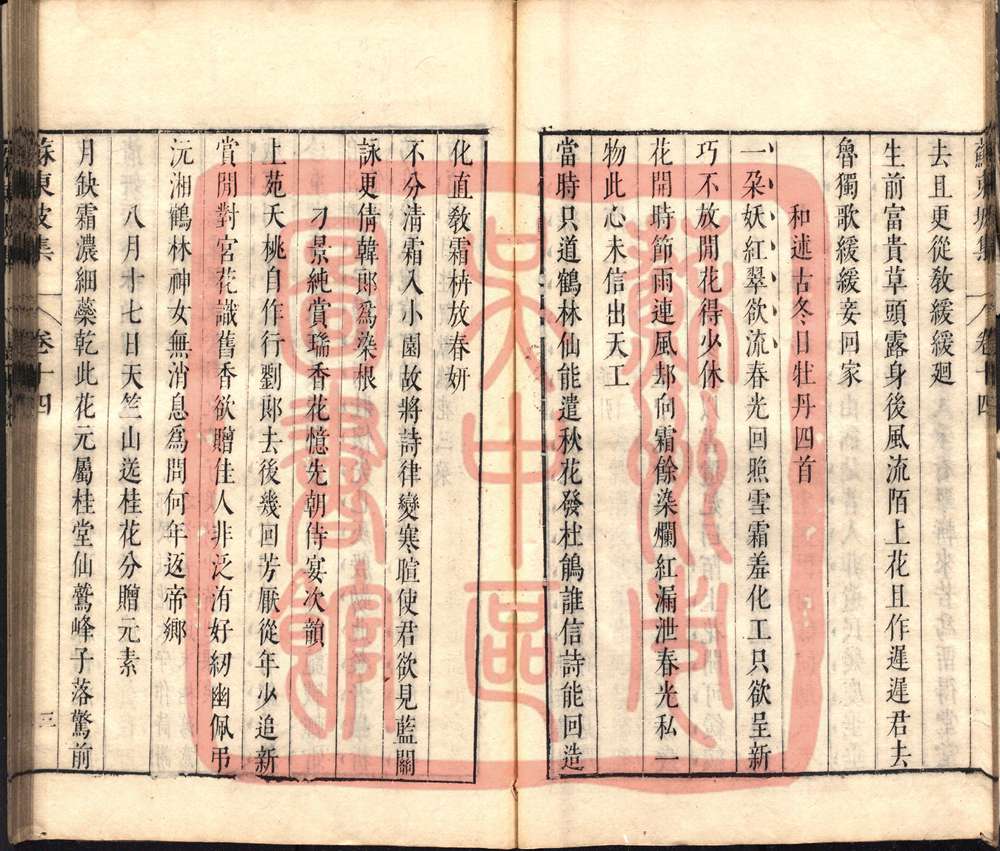 去且更從敎緩緩廻
生前富貴草頭露身後風流陌上花且作遲遲君去
魯獨歌緩緩妾回家
和述古冬日牡丹四首
一朶妖紅翠欲流春光回照雪霜羞化工只欲呈新
巧不放閒花得少休
花開時節雨連風却向霜餘染爛紅漏泄春光私一
物此心未信出天工
當時只道鶴林仙能遣秋花發杜鵑誰信詩能回造
化直敎霜枿放春妍
不分清霜入小園故將詩律變寒暄使君欲見藍關
詠更倩韓郎爲染根
刁景純賞瑞香花憶先朝侍宴次韻
上苑夭桃自作行劉郎去後幾回芳厭從年少追新
賞閒對宮花識舊香欲贈佳人非泛洧好紉幽佩弔
沅湘鶴林神女無消息爲問何年返帝鄉
八月十七日天竺山送桂花分贈元素
月缺霜濃細蘂乾此花元屬桂堂仙鷲峰子落驚前
蘇東坡集
卷十四
三